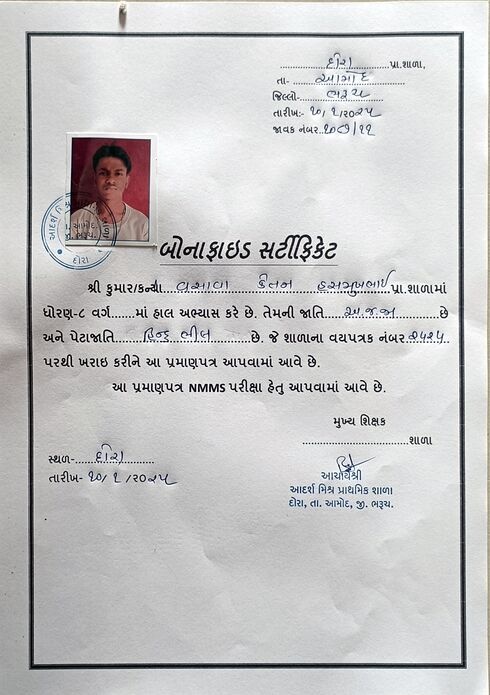 દોરા પ્રા.શાળા,
તા- આમોદ
જિલ્લો- ભરૂચ
તારીખ:- ૧૦/૧/૨૦૨૫
જાવક નંબર..૧૦૭/૧૧
બોનાફાઇડ સર્ટીફિકેટ
શ્રી કુમાર/કન્યા વસાવા કેતન હસમુખભાઈ પ્રા.શાળામાં
ધોરણ-૮ વર્ગ......માં હાલ અભ્યાસ કરે છે. તેમની જાતિ અ.જ.જા છે
અને પેટાજાતિ હિન્દુ ભીલ છે. જે શાળાના વયપત્રક નંબર ૨૫૨૫
પરથી ખરાઇ કરીને આ પ્રમાણપત્ર આપવામાં આવે છે.
આ પ્રમાણપત્ર NMMS પરીક્ષા હેતુ આપવામાં આવે છે.
મુખ્ય શિક્ષક
શાળા
સ્થળ- દોરા
તારીખ- ૧૦/૧/૨૦૨૫
આચાર્યશ્રી
આદર્શ મિશ્ર પ્રાથમિક શાળા
દોરા, તા. આમોદ, જી. ભરૂચ.